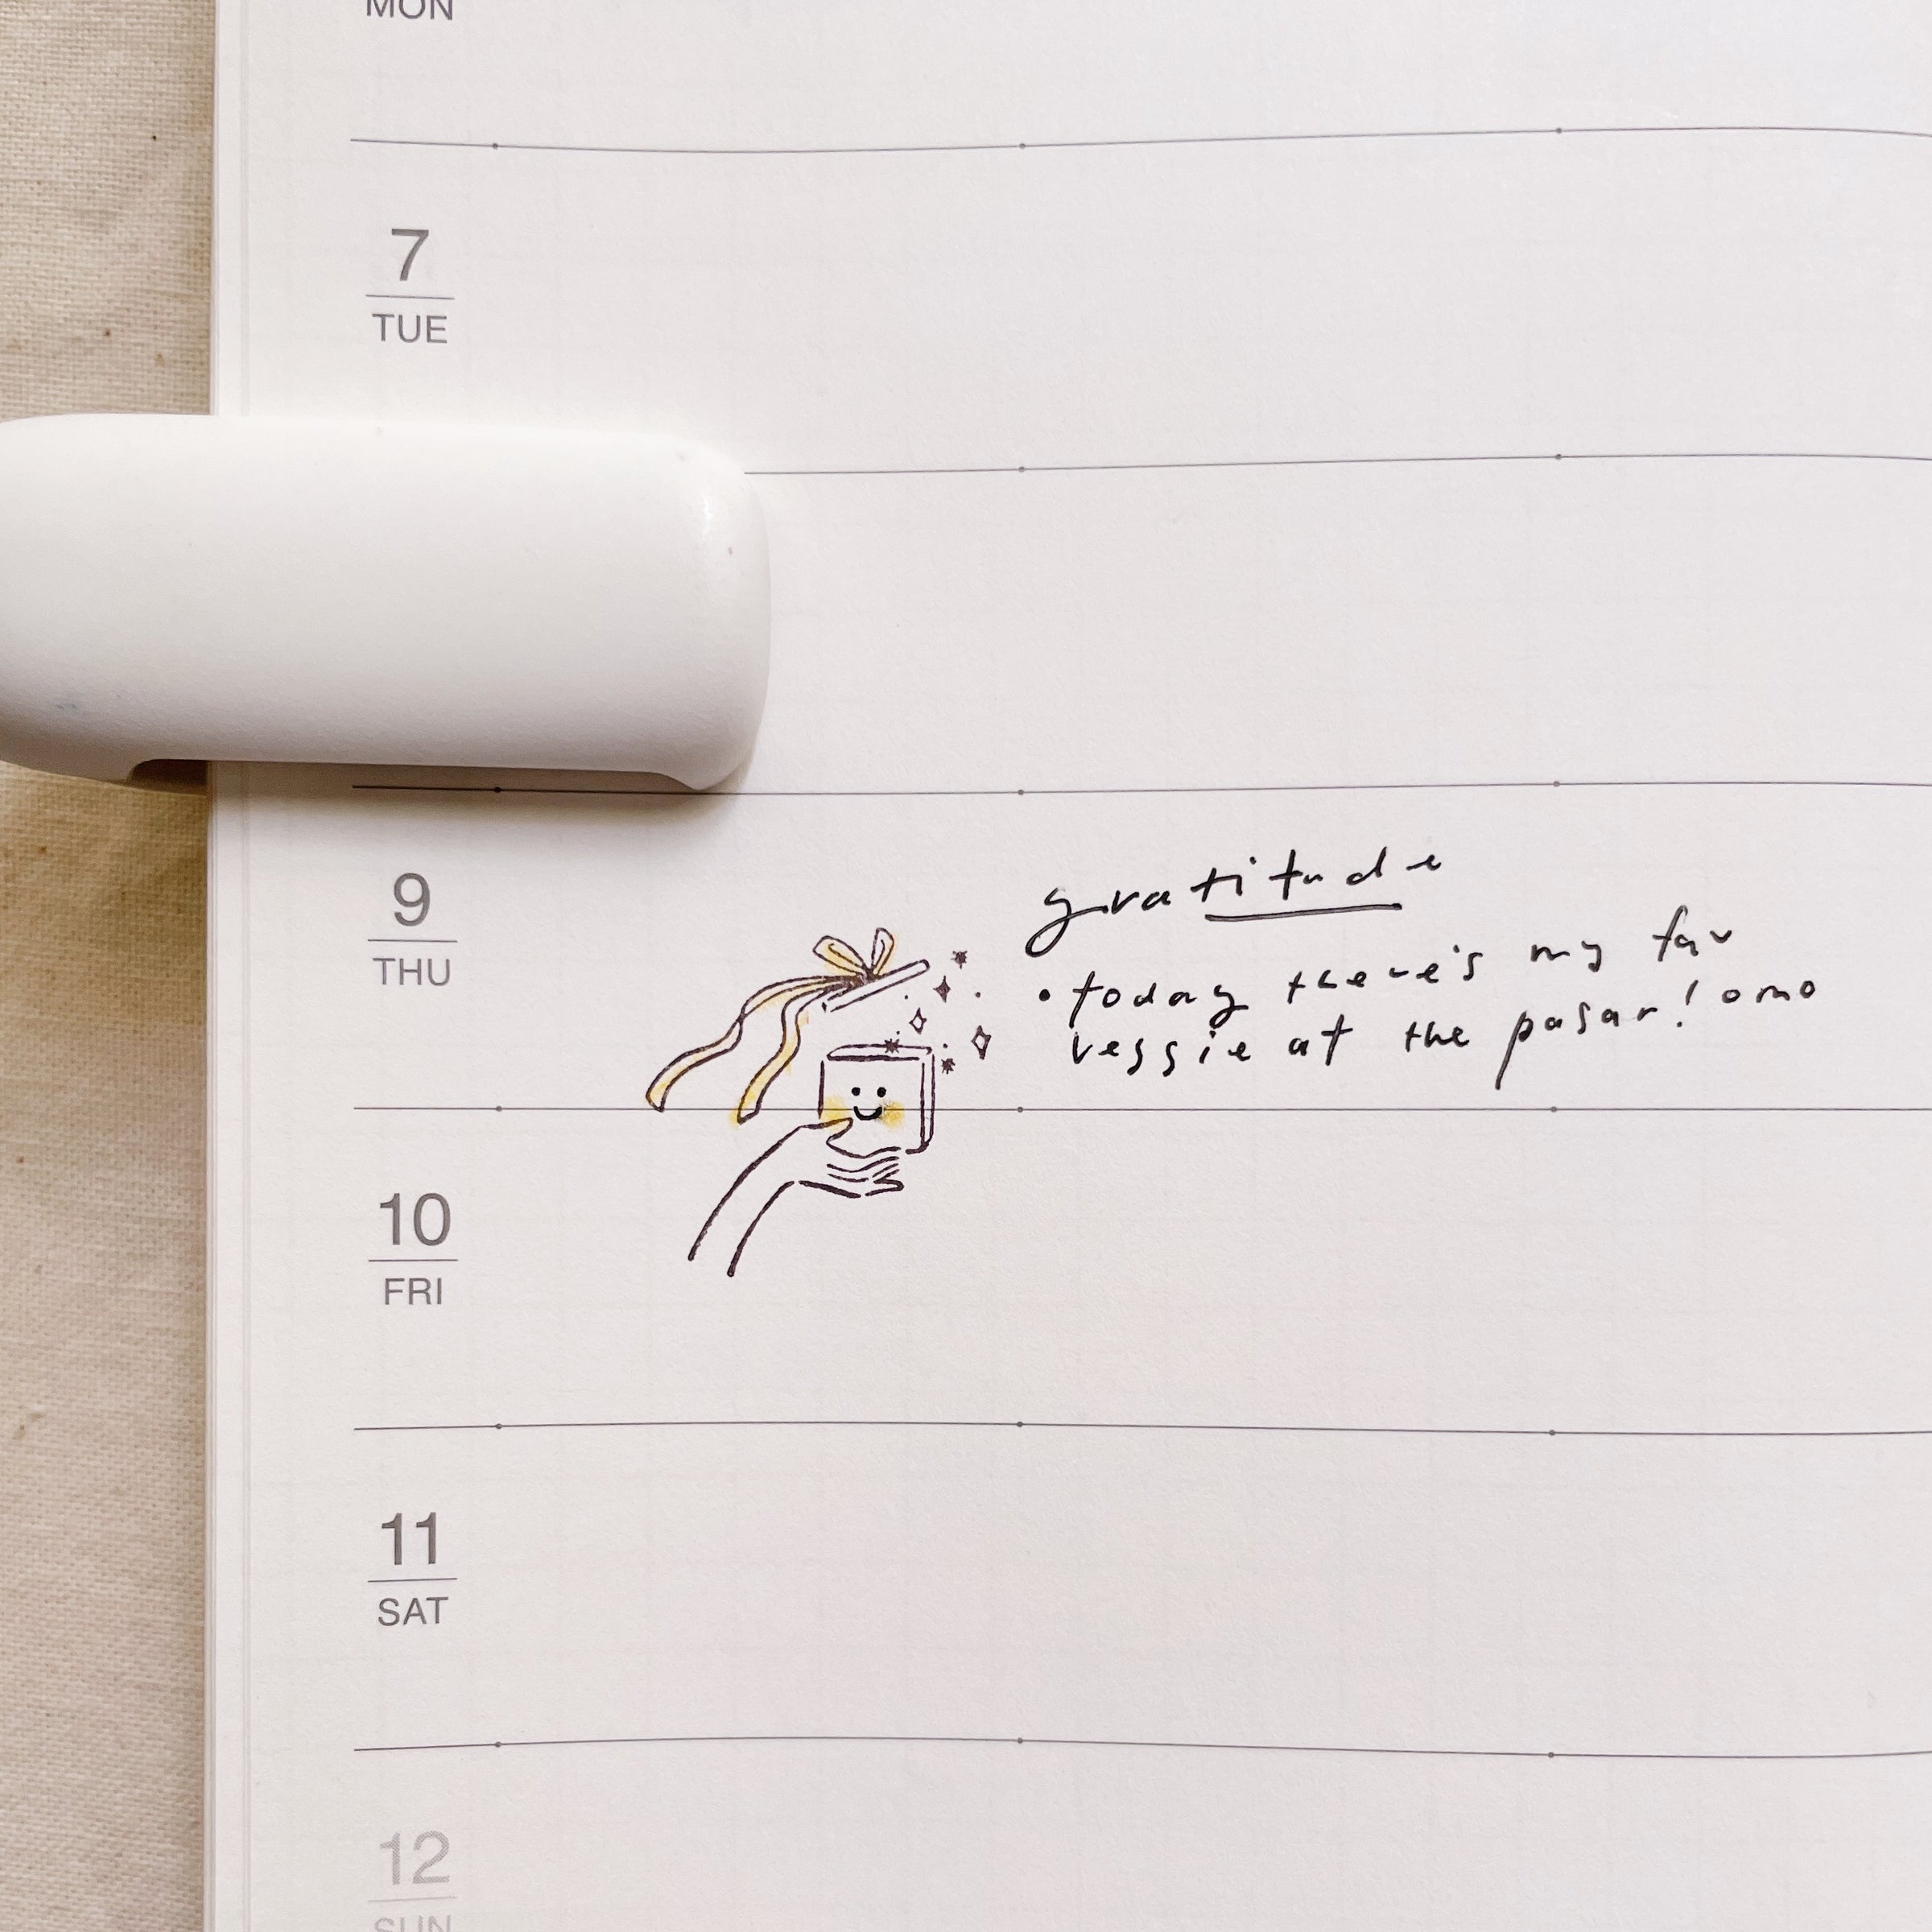 MON
7
TUE
9
THU
gratitude
• today there's my fav
veggie at the pasar! omo
10
FRI
11
SAT
12
SUN